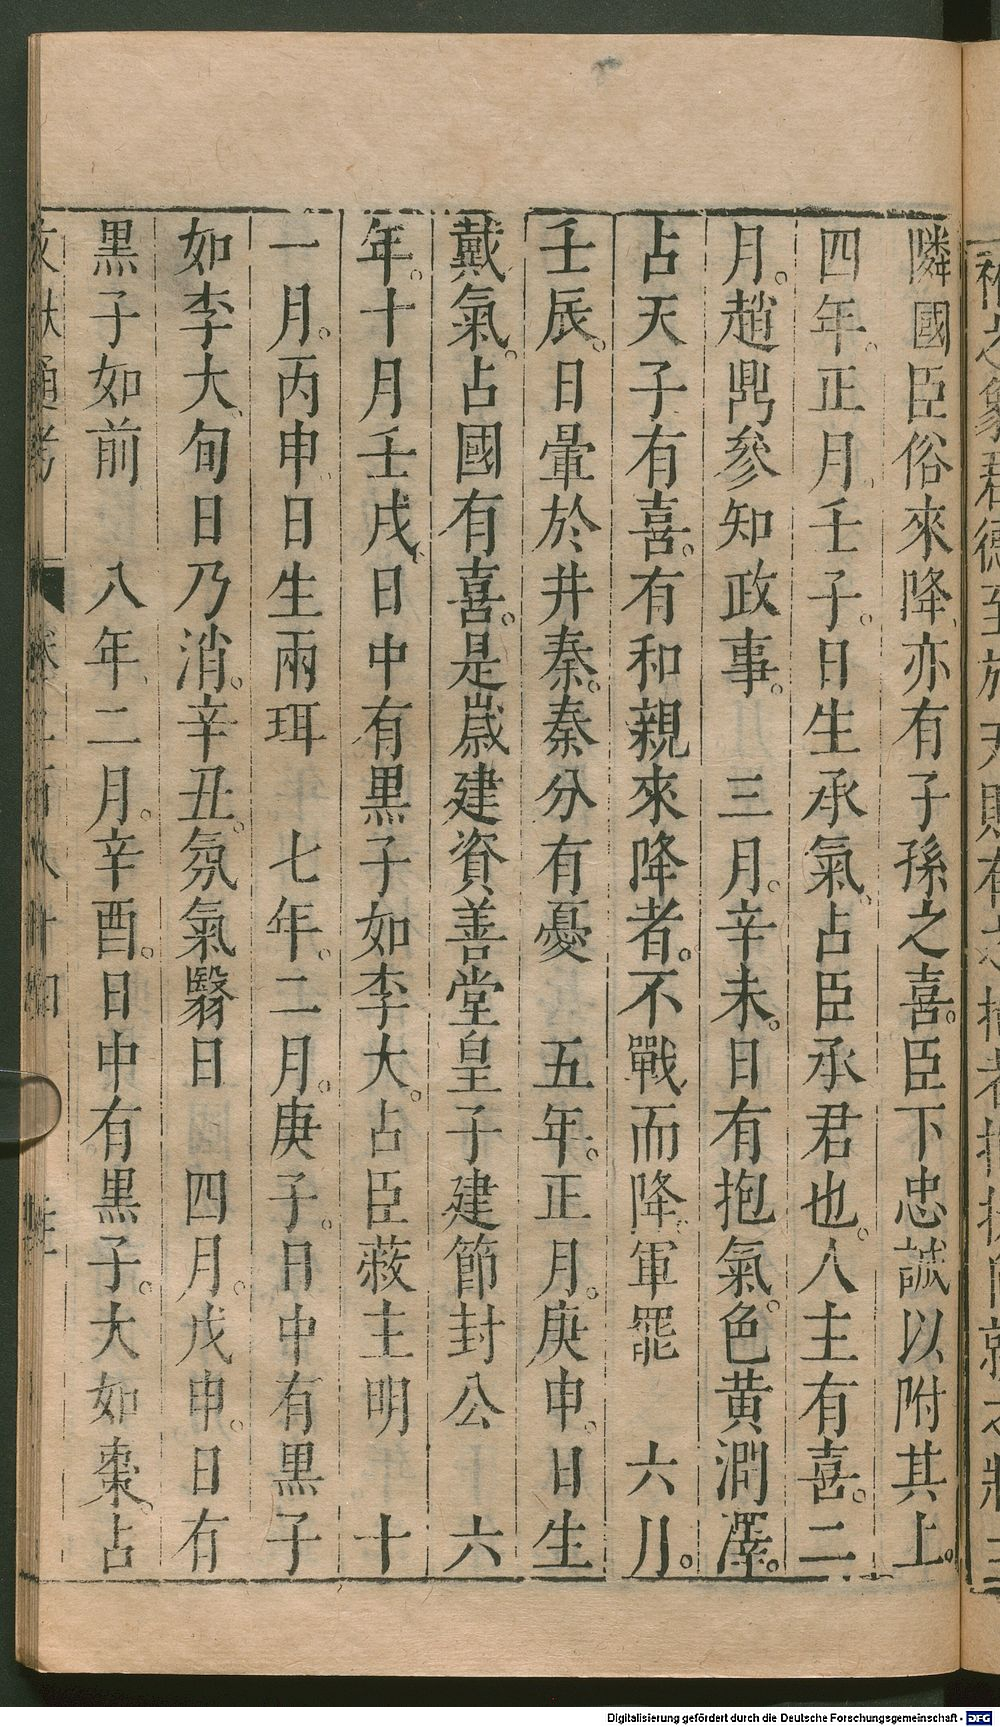 隣國臣俗來降亦有子孫之喜。臣下忠誠以附其上。
四年。正月壬子。日生承氣。占臣承君也。人主有喜。二
月。趙鼎參知政事。 三月。辛未。日有抱氣。色黃潤澤。
占天子有喜。有和親來降者。不戰而降。軍罷 六月。
壬辰。日暈於井秦。秦分有憂 五年。正月。庚申。日生
戴氣。占國有喜。是歲建資善堂皇子建節封公 六
年。十月壬戌、日中有黑子如李大。占臣蔽主明 十
一月。丙申。日生兩珥 七年。二月。庚子。日中有黑子
如李大、旬日乃消。辛丑。氛氣翳日 四月。戊申。日有
黑子如前 八年、二月。辛酉。日中有黑子。大如棗。占
文獻通考 卷二百八十四
Digitalisierung gefördert durch die Deutsche Forschungsgemeinschaft - DFG